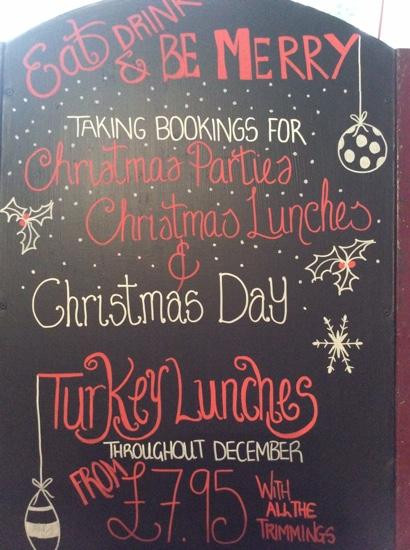 Eat, DRINK
& BE MERRY
TAKING BOOKINGS FOR
Christmas Parties
Christmas Lunches
&
CHRISTMAS DAY
TURKEY LUNCHES
THROUGHOUT DECEMBER
FROM £7.95 WITH ALL THE TRIMMINGS